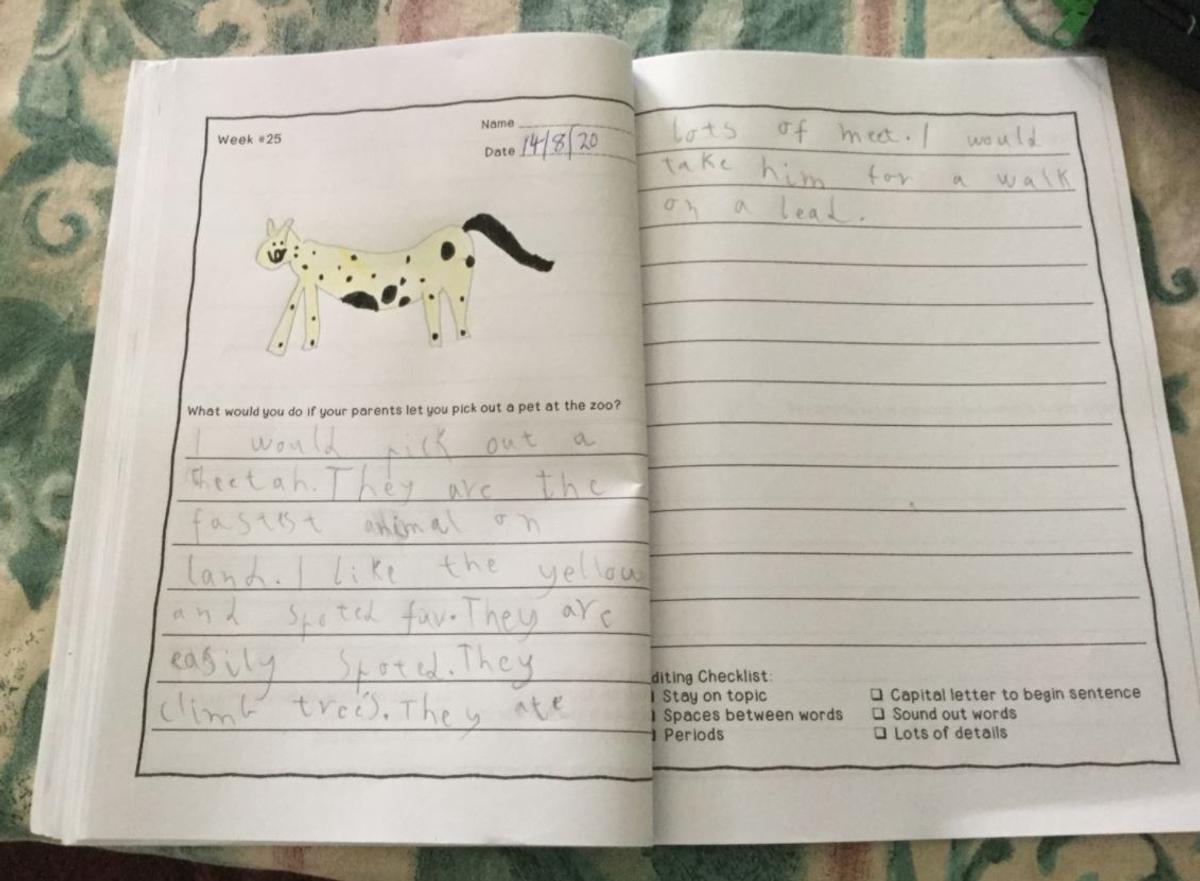 Week #25
Name
Date 14/8/20
What would you do if your parents let you pick out a pet at the zoo?
I would pick out a
cheetah. They are the
fastest animal on
land. I like the yellow
and spoted fur. They are
easily spoted. They
climb trees. They ate
lots of meet. I would
take him for a walk
on a lead.
diting Checklist:
Stay on topic
Spaces between words
Periods
Capital letter to begin sentence
Sound out words
Lots of details